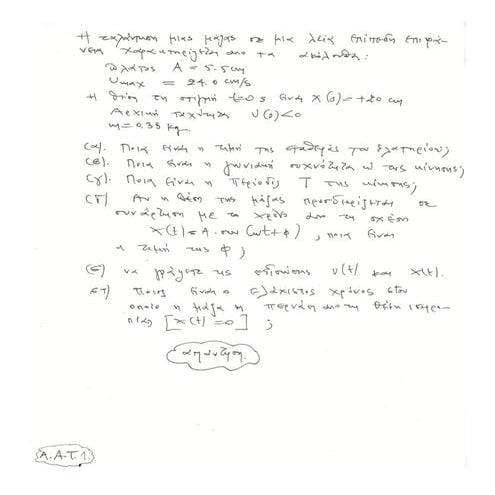 Η ταλάντωση μιας μάζας σε μια λεία επίπεδη επιφά-
νεια χαρακτηρίζεται απο τα ακόλουθα:
Πλάτος A = 5.5 cm
Umax = 24.0 cm/s
Η θέση τη στιγμή t=0 s είναι X(0)=+ cm
Αρχική ταχύτητα U(0)<0
m=0.38 kg.
(α). Ποια είναι η τιμή της σταθεράς του ελατηρίου;
(β). Ποια είναι η γωνιακή συχνότητα ω της κίνησης;
(γ). Ποια είναι η περίοδος T της κίνησης;
(δ) Αν η θέση της μάζας προσδιορίζεται σε
συνάρτηση με το χρόνο απο τη σχέση
X(t)=A·συν(ωt+φ), ποια είναι
η τιμή της φ;
(ε) να γράψετε τις εξισώσεις U(t) και X(t).
στ) Ποιος είναι ο ελάχιστος χρόνος στον
οποίο η μάζα περνάει απο τη θέση ισορρο-
πίας [X(t)=0];
απάντηση.
A.A.T.1.